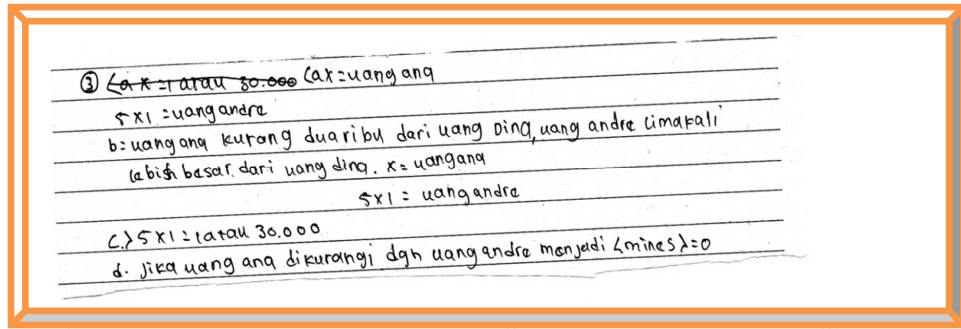 ③ <a x=1 atau 30.000 (ax=uang ana
5x1 =uang andre
b= uang ana kurang duaribu dari uang Dina, uang andre Limakali
lebih besar. dari uang dina. x= uangana
5x1 = uang andre
C.) 5x1=1atau 30.000
d. Jika uang ana dikurangi dgn uang andre menjadi <mines>=0